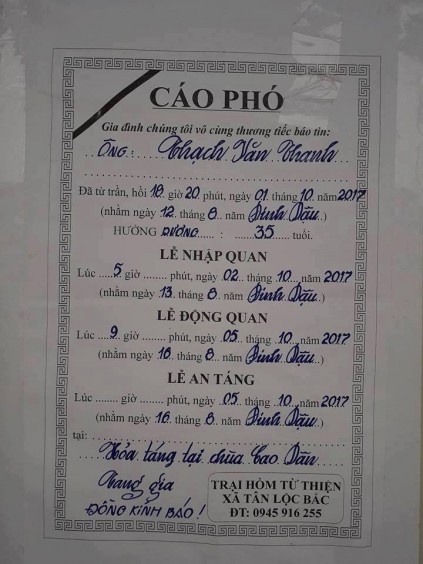 CÁO PHÓ
Gia đình chúng tôi vô cùng thương tiếc báo tin:
ÔNG: Thạch Văn Thanh
Đã từ trần, hồi 18 giờ 20 phút, ngày 01 tháng 10 năm 2017
(nhằm ngày 12 tháng 8 năm Đinh Dậu.)
HƯỞNG DƯƠNG : 35 tuổi.
LỄ NHẬP QUAN
Lúc 5 giờ ........ phút, ngày 02 tháng 10 năm 2017
(nhằm ngày 13 tháng 8 năm Đinh Dậu.)
LỄ ĐỘNG QUAN
Lúc 9 giờ ........ phút, ngày 05 tháng 10 năm 2017
(nhằm ngày 16 tháng 8 năm Đinh Dậu.)
LỄ AN TÁNG
Lúc ........ giờ ........ phút, ngày 05 tháng 10 năm 2017
(nhằm ngày 16 tháng 8 năm Đinh Dậu.)
tại:
Hỏa táng tại chùa Cao Dân
Tang gia
ĐỒNG KÍNH BÁO!
TRẠI HÒM TỪ THIỆN
XÃ TÂN LỘC BẮC
ĐT: 0945 916 255